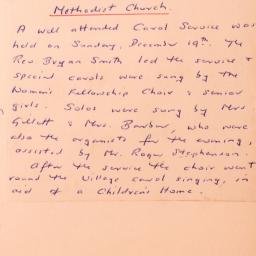 Methodist Church.
A well attended Carol Service was
held on Sunday, December 19th. The
Rev. Bryan Smith led the service &
special carols were sung by the
Women's Fellowship Choir & senior
girls. Solos were sung by Mrs.
Gillett & Mrs. Barber, who were
also the organists for the evening,
assisted by Mr. Roger Stephenson.
After the service the choir went
round the village carol singing, in
aid of a Children's Home.